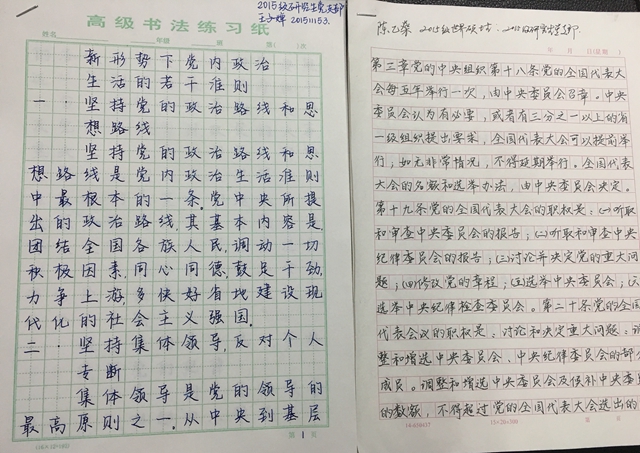 2015级研究生党支部
高级书法练习纸
王子婵 20151153.
新形势下党内政治
生活的若干准则
一.坚持党的政治路线和思
想路线
坚持党的政治路线和思
想路线是党内政治生活准则
中最根本的一条.党中央所提
出的政治路线.其基本内容是.
团结全国各族人民,调动一切
积极因素同心同德,鼓足干劲.
力争上游,多快好省地建设现
代化的社会主义强国.
二.坚持集体领导,反对个人
专断
集体领导是党的领导的
最高原则之一.从中央到基层
第1页
2015级
年 月 日(星期 )
第三章党的中央组织第十八条党的全国代表大
会每五年举行一次,由中央委员会召章。中央
委员会认为有必要,或者有三分之一以上的省
一级组织提出要求,全国代表大会可以提前举
行,如无非常情况,不得延期举行。全国代表
大会的名额和选举办法,由中央委员会决定。
第十九条党的全国代表大会的职权是:(一)听取
和审查中央委员会的报告;(二)听取和审查中央
纪律委员会的报告;(三)讨论并决定党的重大问
题;(四)修改党的章程;(五)选举中央委员会;(六)
选举中央纪律检查委员会。第二十条党的全国
代表会议的职权是:讨论和决定重大问题:调
整和增选中央委员会、中央纪律委员会的部分
成员。调整和增选中央委员会及候补中央委员
的数额,不得超过党的全国代表大会选出的
15×20=300